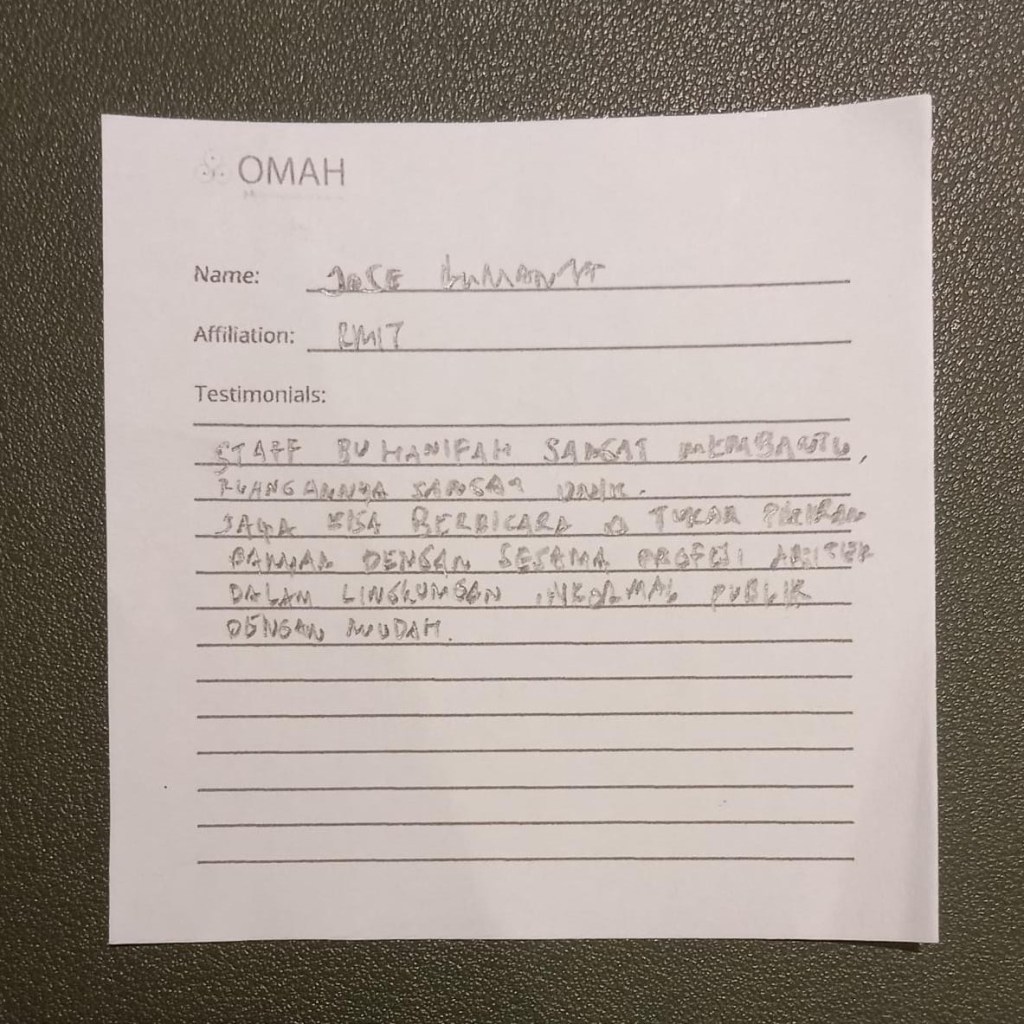 OMAH
Name: JOSE
Affiliation: RMIT
Testimonials:
STAFF BU HANIFAH SANGAT MEMBANTU,
RUANGANNYA SANGAT UNIK.
SAYA BISA BERBICARA & TUKAR PIKIRAN
DENGAN SESAMA PROFESI ARSITEK
DALAM LINGKUNGAN INFORMAL PUBLIK
DENGAN MUDAH.